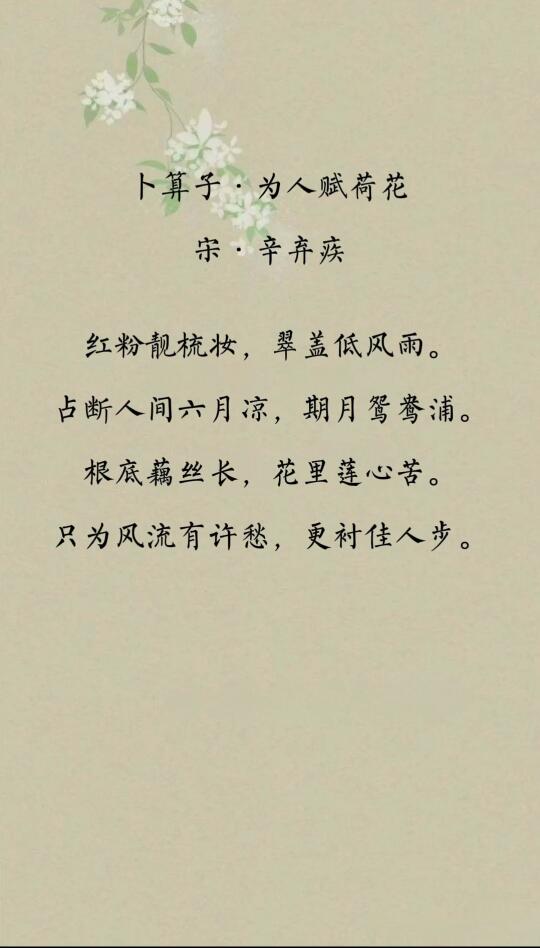 卜算子·为人赋荷花
宋·辛弃疾
红粉靓梳妆，翠盖低风雨。
占断人间六月凉，期月鸳鸯浦。
根底藕丝长，花里莲心苦。
只为风流有许愁，更衬佳人步。